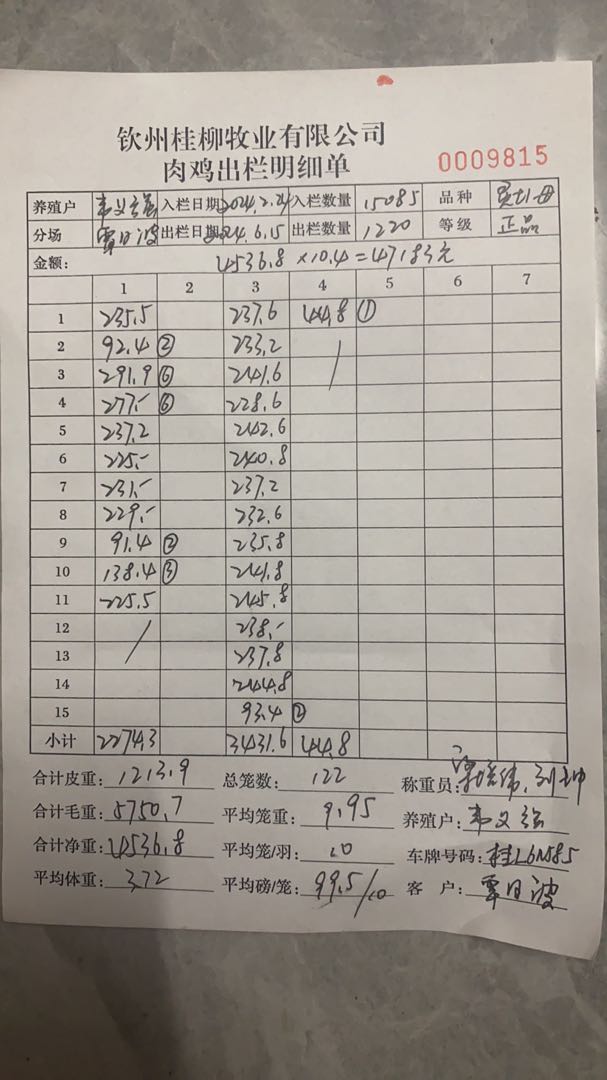 钦州桂柳牧业有限公司
肉鸡出栏明细单
0009815
养殖户 韦义强 入栏日期 2024.2.24 入栏数量 15085 品种
分场 覃日波 出栏日期 2024.6.15 出栏数量 1220 等级 正品
金额: 4536.8×10.4=47183元
1 2 3 4 5 6 7
1 235.5 237.6 44.8 ①
2 92.4 ② 233.2
3 291.9 ⑥ 241.6
4 277.- ⑥ 228.6
5 237.2 242.6
6 225.- 240.8
7 231.- 237.2
8 229.- 232.6
9 91.4 ② 235.8
10 138.4 ③ 241.8
11 225.5 245.8
12 238.-
13 237.8
14 244.8
15 93.4 ②
小计 2274.3 3431.6 44.8
合计皮重: 1213.9 总笼数: 122 称重员:
合计毛重: 5750.7 平均笼重: 9.95 养殖户: 韦义强
合计净重: 4536.8 平均笼/羽: 10 车牌号码: 桂L6N585
平均体重: 3.72 平均磅/笼: 99.5/10 客 户: 覃日波